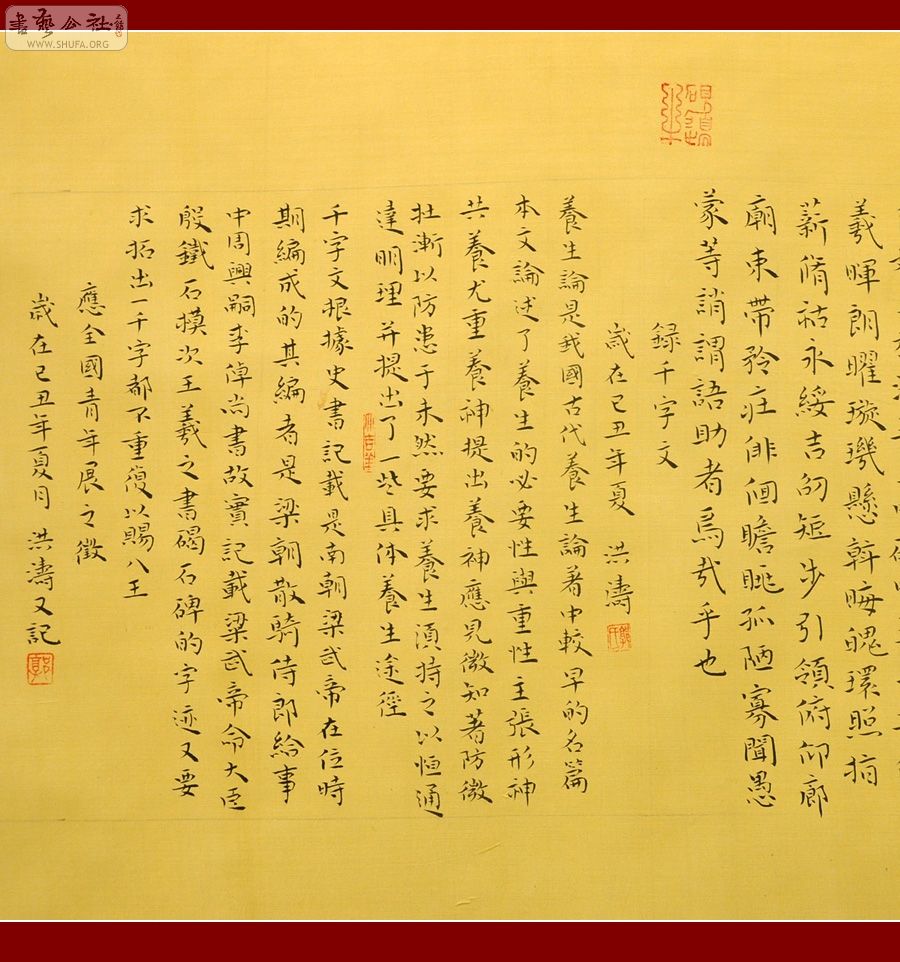 書藝公社
WWW.SHUFA.ORG
羲暉朗曜璇璣懸斡晦魄環照指
薪脩祜永綏吉劭矩步引領俯仰廊
廟束帶矜庄俳佪瞻眺孤陋寡聞愚
蒙等誚謂語助者焉哉乎也
録千字文
歲在己丑年夏 洪濤
養生論是我國古代養生論著中較早的名篇
本文論述了養生的必要性與重性主張形神
共養尤重養神提出養神應見微知著防微
杜漸以防患于未然要求養生須持之以恒通
達明理并提出了一些具体養生途徑
千字文根據史書記載是南朝梁武帝在位時
期編成的其編者是梁朝散騎侍郎給事
中周興嗣李倬尚書故實記載梁武帝命大臣
殷鐵石摸次王羲之書碣石碑的字迹又要
求拓出一千字都不重復以賜八王
應全國青年展之徵
歲在己丑年夏月 洪濤又記